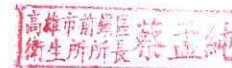 高雄市前鎮區
衛生所所長
蔡孟純